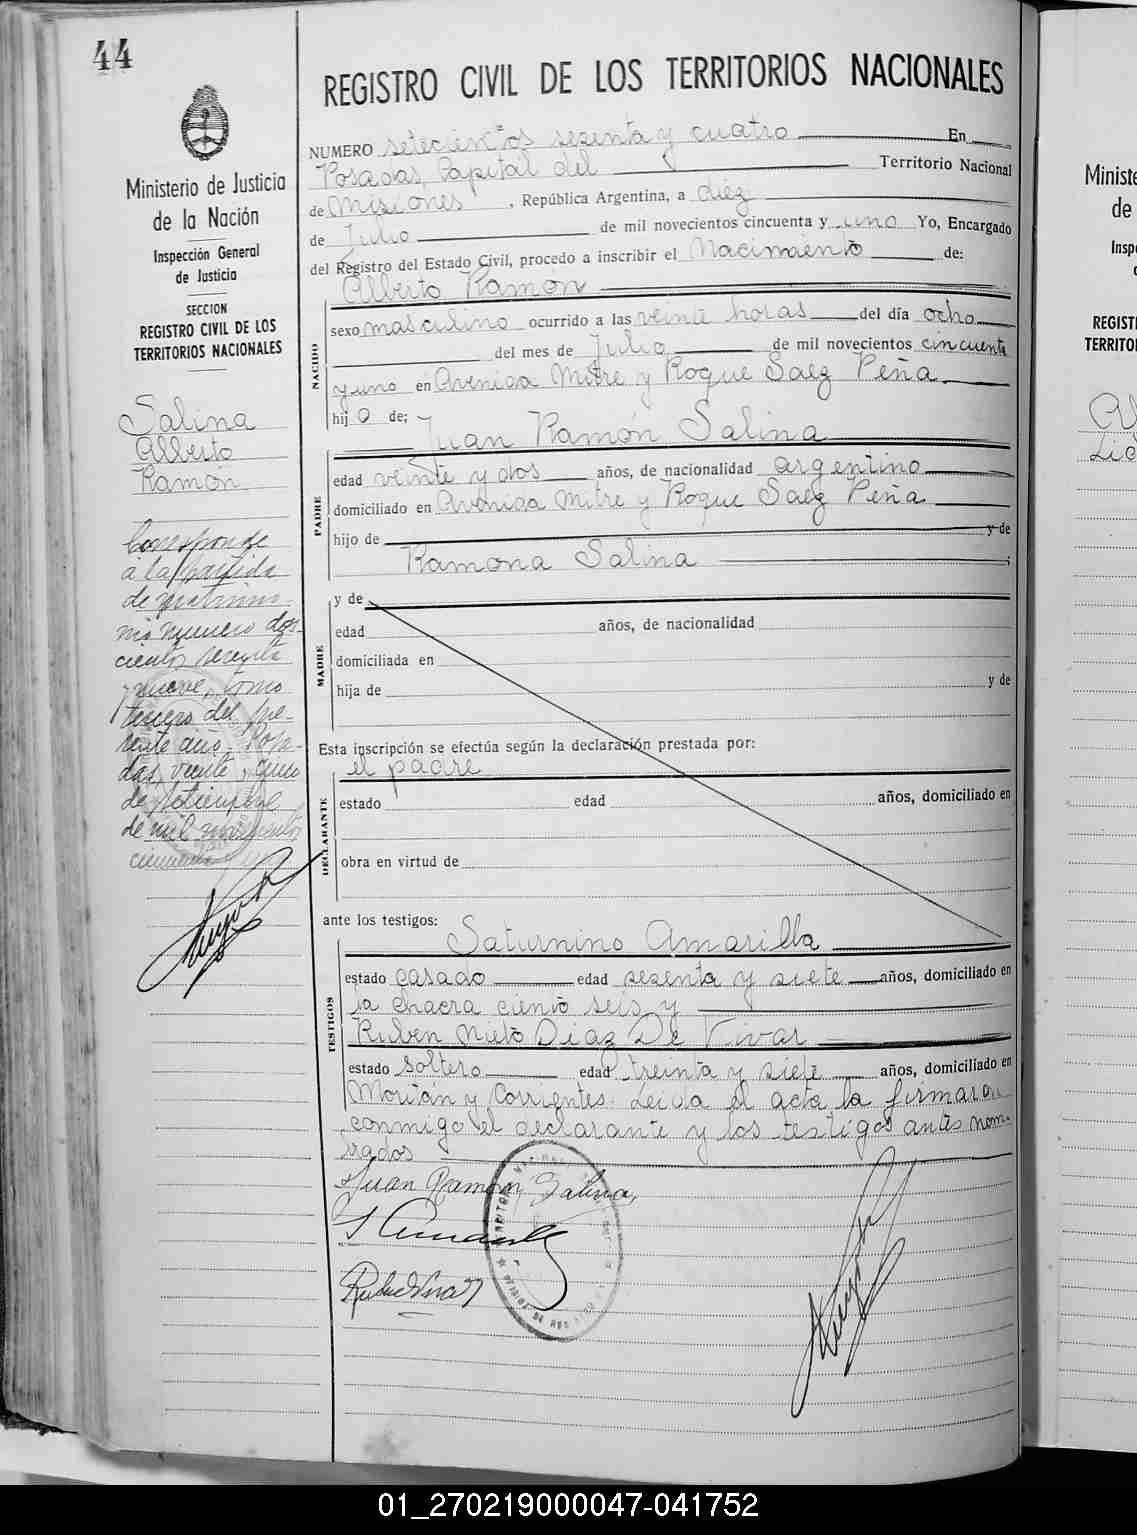 44
Ministerio de Justicia
de la Nación
Inspección General
de Justicia
SECCION
REGISTRO CIVIL DE LOS
TERRITORIOS NACIONALES
Salina
Alberto
Ramón
Corresponde
a la partida
de matrimo-
nio numero dos-
cientos sesenta
y nueve, tomo
tercero del pre-
sente año. Posa-
das, veinte y cinco
de setiembre
de mil novecientos
cincuenta y uno
REGISTRO CIVIL DE LOS TERRITORIOS NACIONALES
NUMERO setecientos sesenta y cuatro En
Posadas, Capital del Territorio Nacional
de Misiones, República Argentina, a diez
de Julio de mil novecientos cincuenta y uno Yo, Encargado
del Registro del Estado Civil, procedo a inscribir el Nacimiento de:
Alberto Ramón
NACIDO
sexo masculino ocurrido a las veinte horas del día ocho
del mes de Julio de mil novecientos cincuenta
y uno en Avenida Mitre y Roque Saez Peña
hij o de;
Juan Ramón Salina
PADRE
edad veinte y dos años, de nacionalidad argentino
domiciliado en Avenida Mitre y Roque Saez Peña
hijo de y de
Ramona Salina ;
MADRE
y de
edad años, de nacionalidad
domiciliada en
hija de y de
Esta inscripción se efectúa según la declaración prestada por:
el padre
DECLARANTE
estado edad años, domiciliado en
obra en virtud de
ante los testigos:
Saturnino Amarilla
TESTIGOS
estado casado edad sesenta y siete años, domiciliado en
la chacra ciento seis y
Ruben Nieto Diaz De Vivar
estado soltero edad treinta y siete años, domiciliado en
Moritán y Corrientes. Leida el acta la firmaron
conmigo el declarante y los testigos antes nom-
brados
Juan Ramon Salina
Ministe
de
Insp
REGISTI
TERRITO
01_270219000047-041752